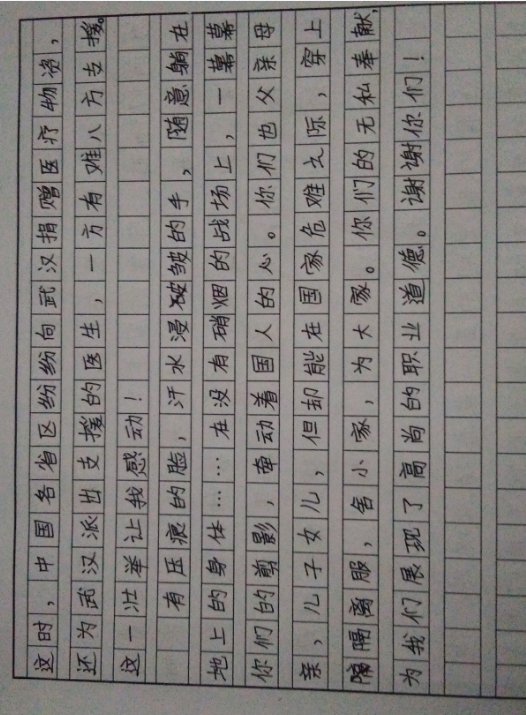 这时，中国各省区纷纷向武汉捐赠医疗物资，
还为武汉派出支援的医生，一方有难八方支援。
这一壮举让我感动！
有压痕的脸，汗水浸皱的手，随意躺在
地上的身体……在没有硝烟的战场上，一幕幕
你们的剪影，牵动着国人的心。你们也父亲母
亲，儿子女儿，但却能在国家危难之际，穿上
隔离服，舍小家，为大家。你们的无私奉献，
为我们展现了高尚的职业道德。谢谢你们！